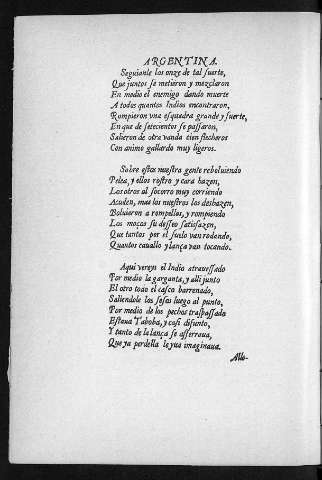 ARGENTINA.
Seguianle los onze de tal suerte,
Que juntos se metieron y mezclaron
En medio el enemigo dando muerte
A todos quantos Indios encontraron,
Rompieron vna esquadra grande y fuerte,
En que de setecientos se passaron,
Salieron de otra vanda cien flecheros
Con animo gallardo muy ligeros.
Sobre estos nuestra gente reboluiendo
Pelea, y ellos rostro y cara hazen,
Los otros al socorro muy corriendo
Acuden, mas los nuestros los deshazen,
Boluieron a rompellos, y rompiendo
Los moços su desseo satisfazen,
Que tantos por el suelo van rodando,
Quantos cauallo y lança van tocando.
Aqui vereys el Indio atrauessado
Por medio la garganta, y alli junto
El otro todo el casco barrenado,
Saliendole los sesos luego al punto,
Por medio de los pechos traspassado
Estaua Taboba, y casi difunto,
Y tanto de la lança se afferraua,
Que ya perdella Leyua imaginaua.